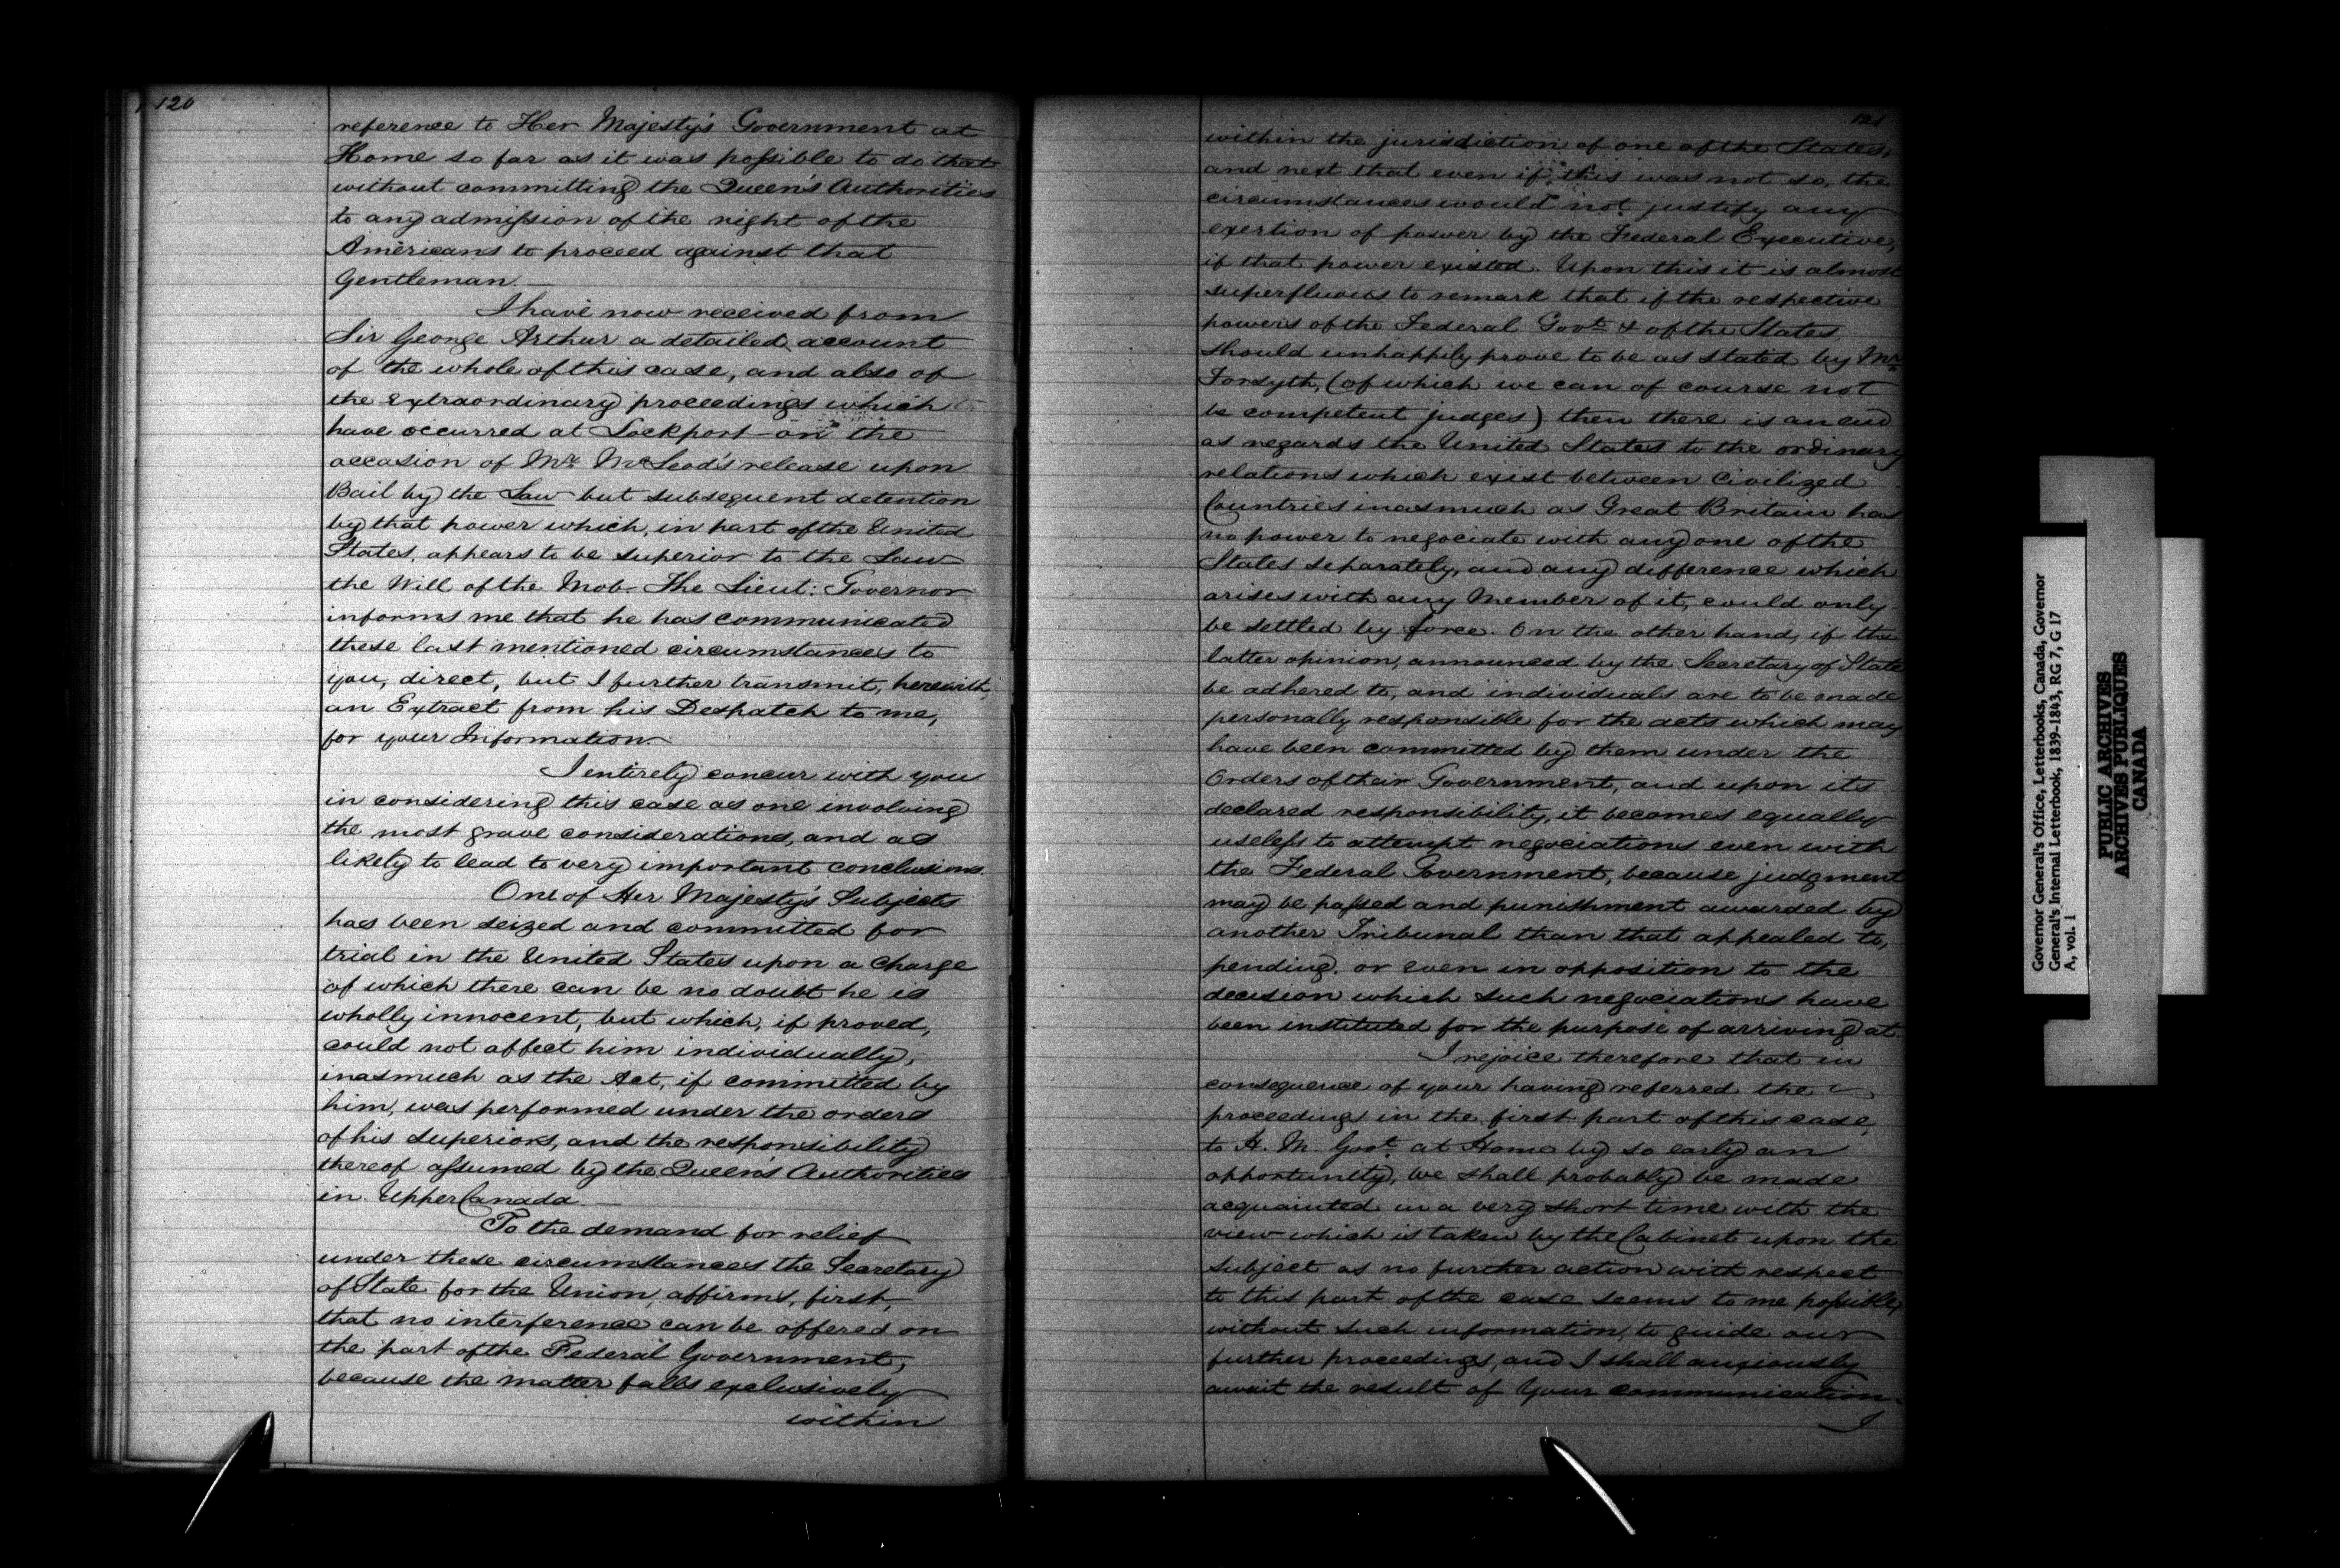 120
reference to Her Majesty's Government at
Home so far as it was possible to do that
without committing the Queen's Authorities
to any admission of the right of the
Americans to proceed against that
Gentleman.
I have now received from
Sir George Arthur a detailed account
of the whole of this case, and also of
the extraordinary proceedings which
have occurred at Lockport on the
occasion of Mr. McLeod's release upon
Bail by the Law but subsequent detention
by that power which, in part of the United
States, appears to be superior to the Law
the Will of the Mob. The Lieut: Governor
informs me that he has communicated
these last mentioned circumstances to
you, direct, but I further transmit, herewith,
an Extract from his Despatch to me,
for your Information.
I entirely concur with you
in considering this case as one involving
the most grave considerations, and as
likely to lead to very important conclusions.
One of Her Majesty's Subjects
has been seized and committed for
trial in the United States upon a Charge
of which there can be no doubt he is
wholly innocent, but which, if proved,
could not affect him individually,
inasmuch as the Act, if committed by
him, was performed under the orders
of his Superiors, and the responsibility
thereof assumed by the Queen's Authorities
in Upper Canada.
To the demand for relief
under these circumstances the Secretary
of State for the Union, affirms, first,
that no interference can be offered on
the part of the Federal Government,
because the matter falls exclusively
within
121
within the jurisdiction of one of the States,
and next that even if this was not so, the
circumstances would not justify any
exertion of power by the Federal Executive,
if that power existed. Upon this it is almost
superfluous to remark that if the respective
powers of the Federal Govt. & of the States
should unhappily prove to be as stated by Mr.
Forsyth, (of which we can of course not
be competent judges) then there is an end
as regards the United States to the ordinary
relations which exist between Civilized
Countries inasmuch as Great Britain has
no power to negociate with any one of the
States separately, and any difference which
arises with any Member of it, could only
be settled by force. On the other hand, if the
latter opinion, announced by the Secretary of State
be adhered to, and individuals are to be made
personally responsible for the acts which may
have been committed by them under the
Orders of their Government, and upon its
declared responsibility, it becomes equally
useless to attempt negociations even with
the Federal Government, because judgment
may be passed and punishment awarded by
another Tribunal than that appealed to,
pending, or even in opposition to the
decision which such negociations have
been instituted for the purpose of arriving at.
I rejoice therefore that in
consequence of your having referred the
proceedings in the first part of this case,
to H. M. Govt. at Home by so early an
opportunity, we shall probably be made
acquainted in a very short time with the
view which is taken by the Cabinet upon the
subject as no further action with respect
to this part of the case seems to me possible,
without such information, to guide our
further proceedings, and I shall anxiously
await the result of your communication.
I
Governor General's Office, Letterbooks, Canada, Governor
General's Internal Letterbook, 1839-1843, RG 7, G 17
A, vol. 1
PUBLIC ARCHIVES
ARCHIVES PUBLIQUES
CANADA